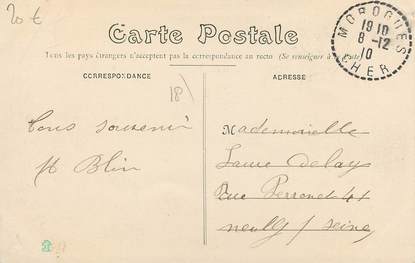 20 €
Carte Postale
Tous les pays étrangers n'acceptent pas la correspondance au recto (Se renseigner à la Poste).
CORRESPONDANCE
ADRESSE
MOROGUES
19 10
8 -12
10
CHER
18
Bons souvenir
Blin
Mademoiselle
Laure Delay
Rue Perronet 41
Neuilly / Seine